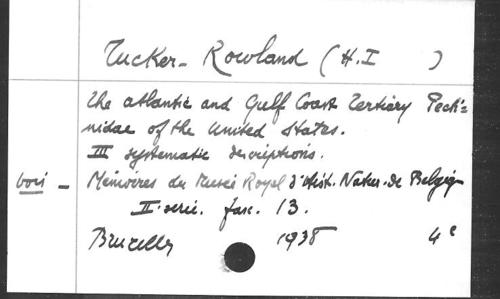 Tucker-Rowland (H.I )
The atlantic and Gulf Coast Tertiary Pecti=
nidae of the United States.
III systematic descriptions.
voir - Mémoires du Musée Royal d'Hist. Natur. de Belgique
II serie. fasc. 13.
Bruxelles 1938 4°